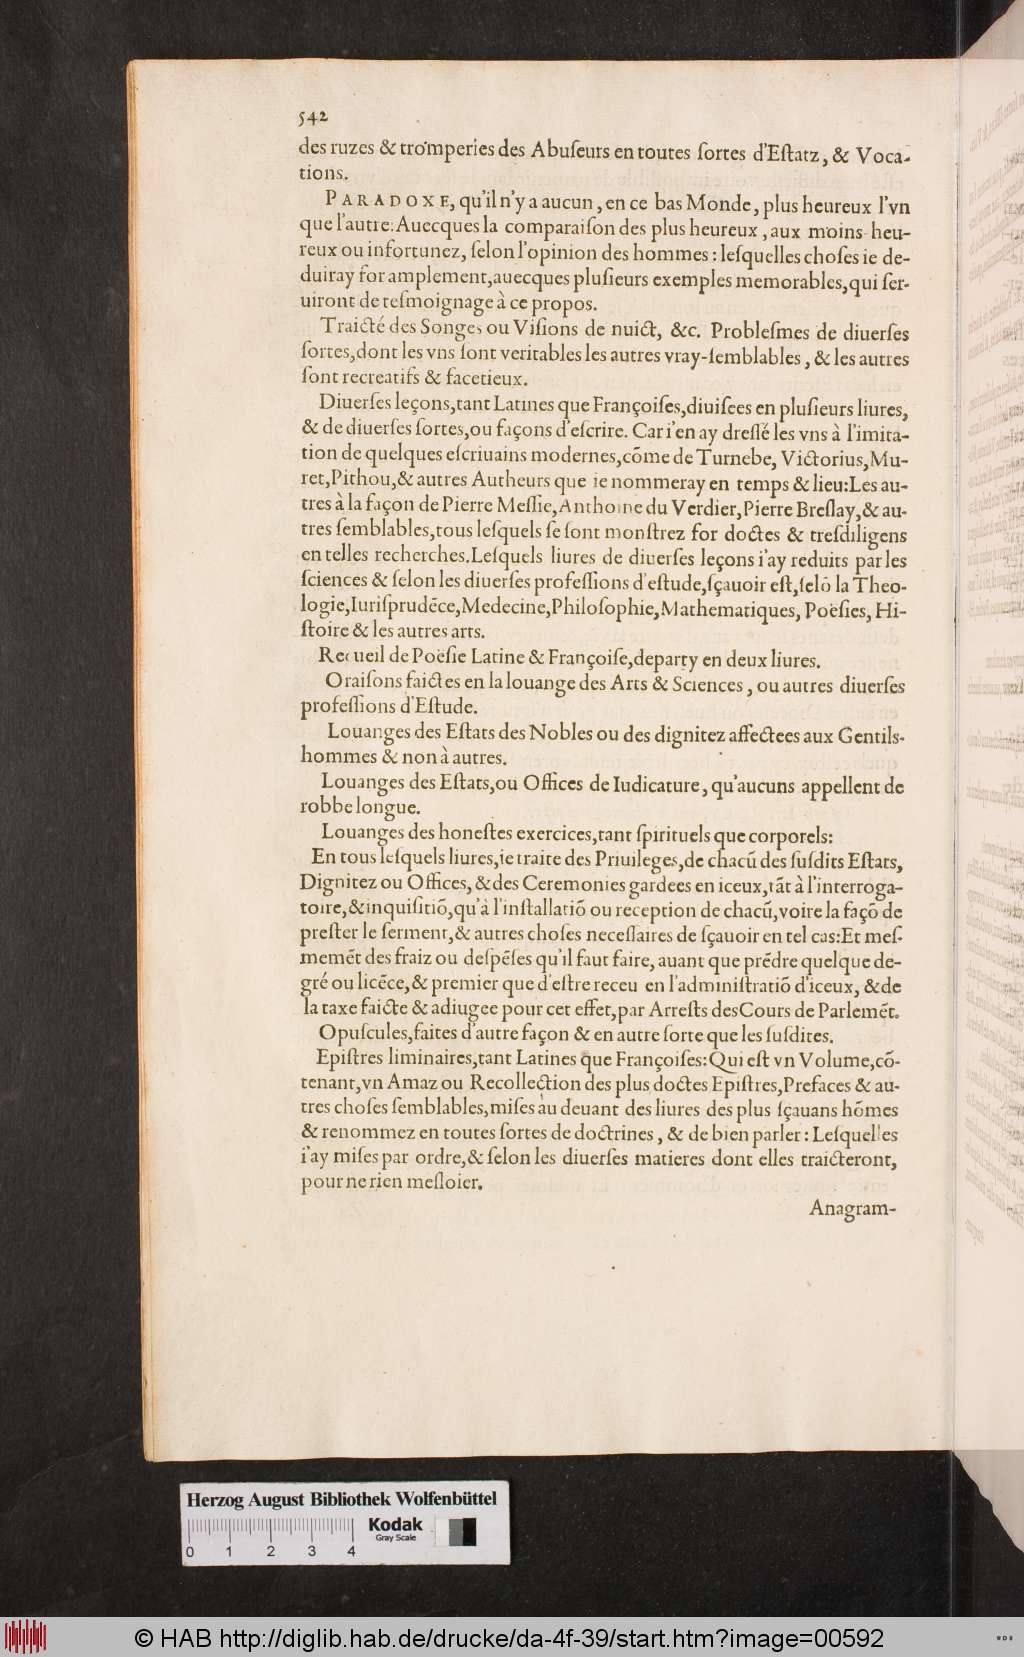 542
des ruzes & trõmperies des Abuſeurs en toutes ſortes d'Eſtatz, & Voca-
tions.
PARADOXE, qu'il n'y a aucun, en ce bas Monde, plus heureux l'vn
que l'autre: Auecques la comparaiſon des plus heureux, aux moins heu-
reux ou infortunez, ſelon l'opinion des hommes: leſquelles choſes ie de-
duiray for amplement, auecques pluſieurs exemples memorables, qui ſer-
uiront de teſmoignage à ce propos.
Traicté des Songes ou Viſions de nuict, &c. Probleſmes de diuerſes
ſortes, dont les vns ſont veritables les autres vray-ſemblables, & les autres
ſont recreatifs & facetieux.
Diuerſes leçons, tant Latines que Françoiſes, diuiſees en pluſieurs liures,
& de diuerſes ſortes, ou façons d'eſcrire. Car i'en ay dreſſé les vns à l'imita-
tion de quelques eſcriuains modernes, cõme de Turnebe, Victorius, Mu-
ret, Pithou, & autres Autheurs que ie nommeray en temps & lieu: Les au-
tres à la façon de Pierre Meſſie, Anthoine du Verdier, Pierre Breſlay, & au-
tres ſemblables, tous leſquels ſe ſont monſtrez for doctes & treſdiligens
en telles recherches. Leſquels liures de diuerſes leçons i'ay reduits par les
ſciences & ſelon les diuerſes profeſſions d'eſtude, ſçauoir eſt, ſelõ la Theo-
logie, Iuriſprudẽce, Medecine, Philoſophie, Mathematiques, Poëſies, Hi-
ſtoire & les autres arts.
Recueil de Poëſie Latine & Françoiſe, departy en deux liures.
Oraiſons faictes en la louange des Arts & Sciences, ou autres diuerſes
profeſſions d'Eſtude.
Louanges des Eſtats des Nobles ou des dignitez affectees aux Gentils-
hommes & non à autres.
Louanges des Eſtats, ou Offices de Iudicature, qu'aucuns appellent de
robbe longue.
Louanges des honeſtes exercices, tant ſpirituels que corporels:
En tous leſquels liures, ie traite des Priuileges, de chacũ des ſuſdits Eſtats,
Dignitez ou Offices, & des Ceremonies gardees en iceux, tãt à l'interroga-
toire, & inquiſitiõ, qu'à l'inſtallatiõ ou reception de chacũ, voire la façõ de
preſter le ſerment, & autres choſes neceſſaires de ſçauoir en tel cas: Et meſ-
memẽt des fraiz ou deſpẽſes qu'il faut faire, auant que prẽdre quelque de-
gré ou licẽce, & premier que d'eſtre receu en l'adminiſtratiõ d'iceux, & de
la taxe faicte & adiugee pour cet effet, par Arreſts des Cours de Parlemẽt.
Opuſcules, faites d'autre façon & en autre ſorte que les ſuſdites.
Epiſtres liminaires, tant Latines que Françoiſes: Qui eſt vn Volume, cõ-
tenant, vn Amaz ou Recollection des plus doctes Epiſtres, Prefaces & au-
tres choſes ſemblables, miſes au deuant des liures des plus ſçauans hõmes
& renommez en toutes ſortes de doctrines, & de bien parler: Leſquelles
i'ay miſes par ordre, & ſelon les diuerſes matieres dont elles traicteront,
pour ne rien meſloier.
Anagram-
Herzog August Bibliothek Wolfenbüttel
Kodak
Gray Scale
0 1 2 3 4
© HAB http://diglib.hab.de/drucke/da-4f-39/start.htm?image=00592